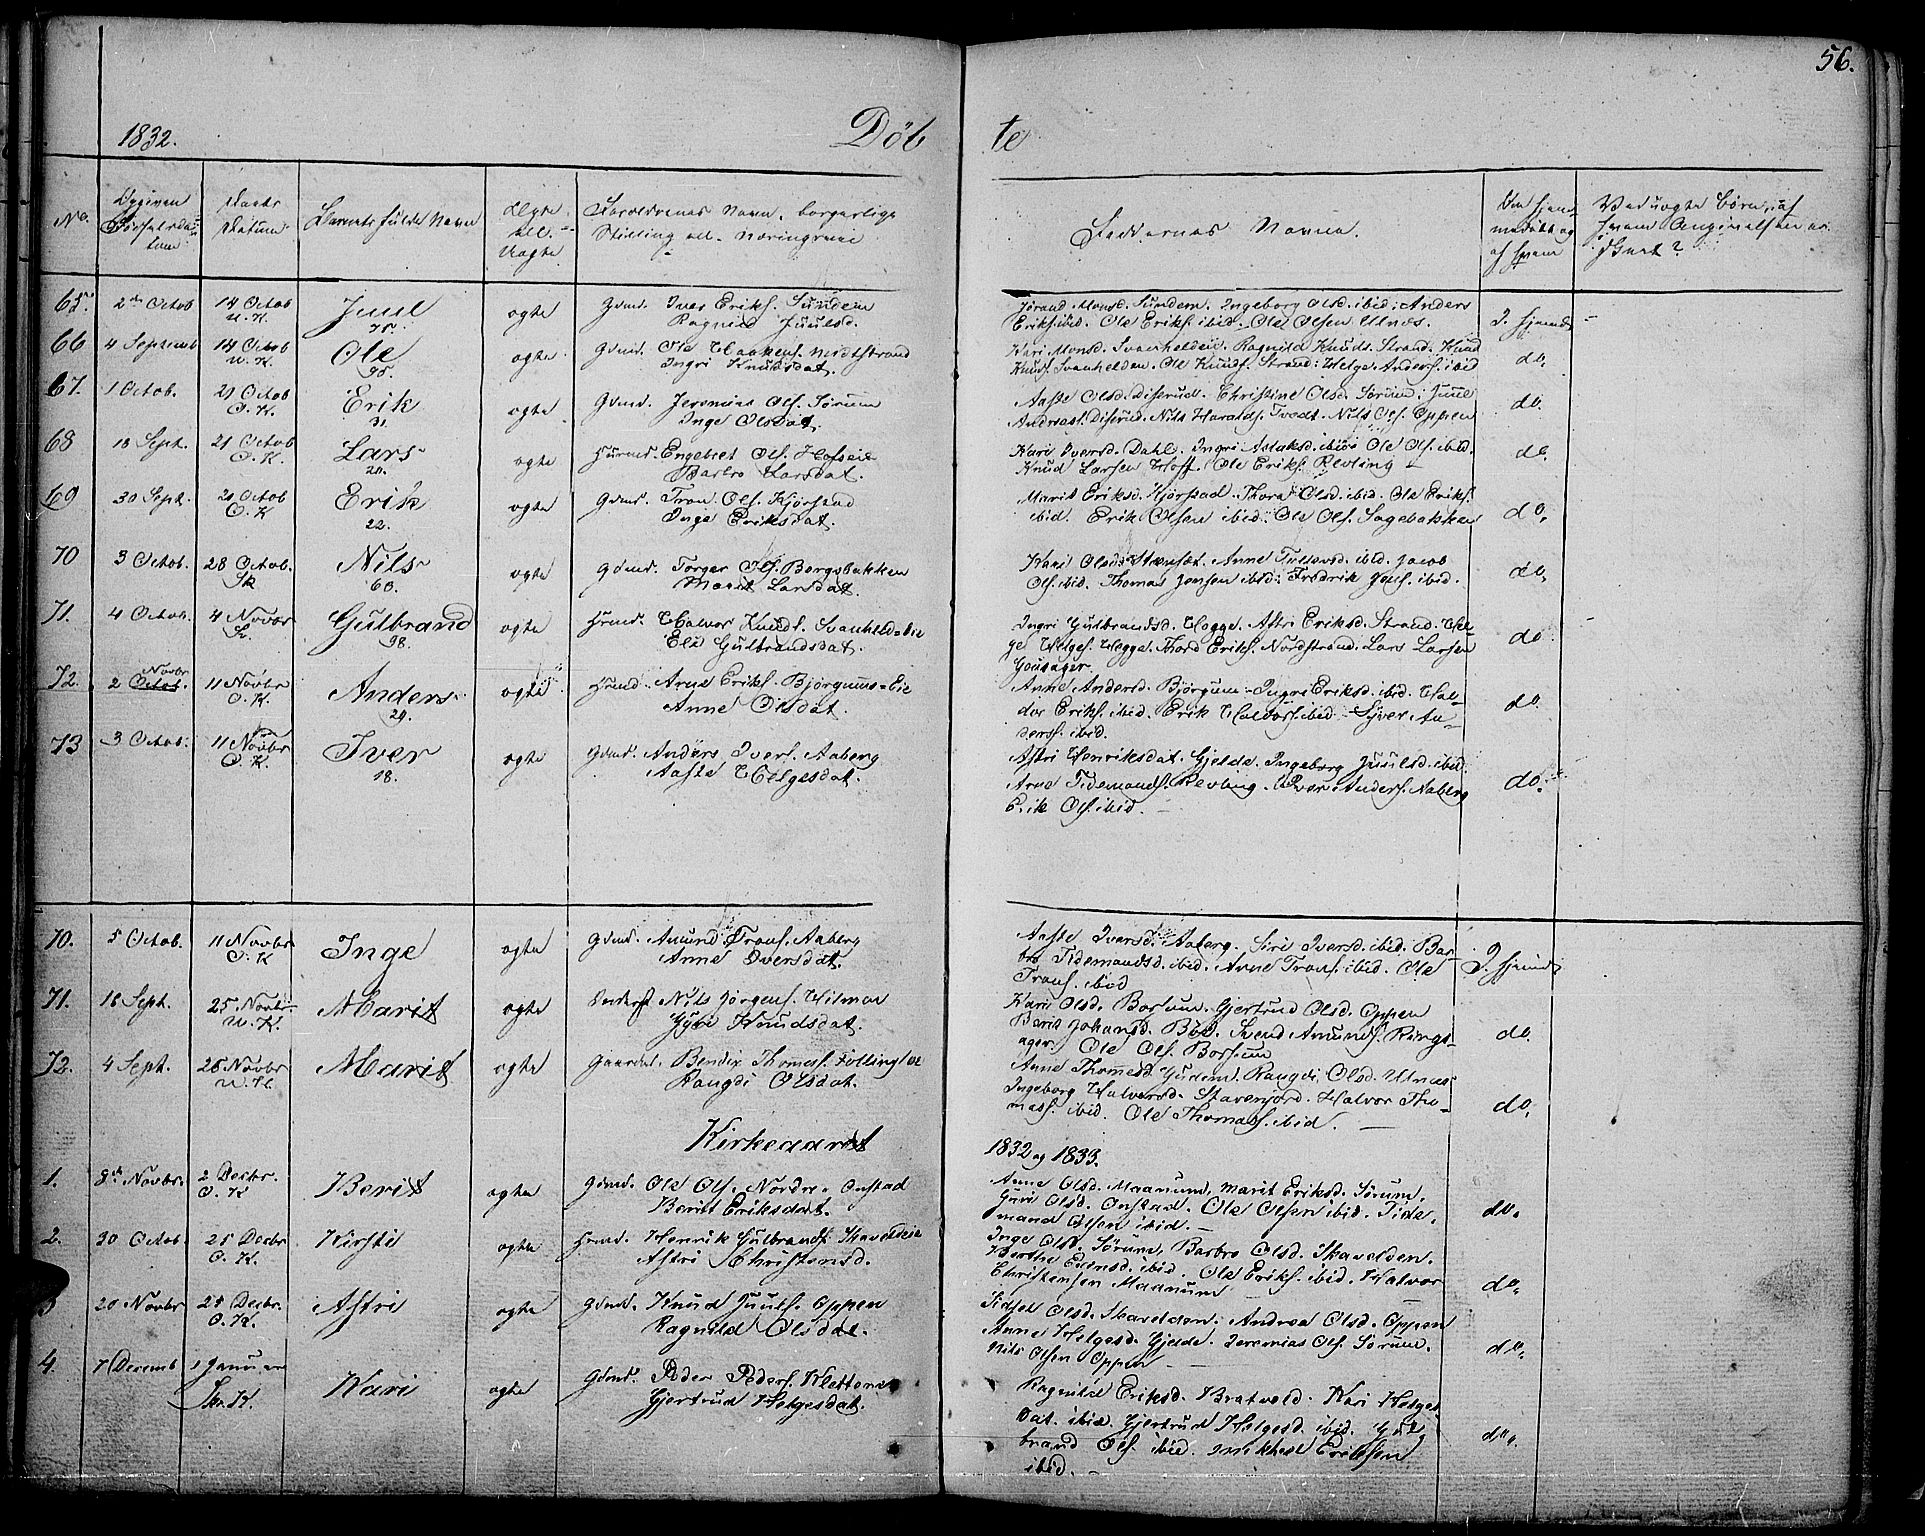 56.
1832. Döb te
No. Opgiven Födselsdatum Daabs Datum Barnets fulde Navn Ægte ell. Uægte Forældrenes Navn, borgerlige Stilling ell. Næringsvei Faddernes Navne. Om hjemmedöbt og af hvem Ved uægte Börn, af hvem Angivelsen er skeet?
65. 2den Octob 14 Octob U. K. Juul 75. ægte Gdmd. Iver Eriks. Sundem
Ragnild Juulsd.
Jörand Monsd. Sundem. Ingeborg Olsd. ibid. Anders
Eriks. ibid. Ole Eriks. ibid. Ole Olsen Ulnæs. J. hjemd.
66 4 Septemb 14 Octob U. K. Ole 95. ægte Gdmd. Ole Haakens. Nordstrand
Ingri Knudsdat.
Kari Monsd. Svanhelden. Ragnild Knuds. Strand. Knud
Knuds. Svanhelden. Ole Knuds. Strand. Helge Anders. ibid do.
67. 1 Octob. 21 Octob O. K. Erik 31. ægte Gdmd. Jeremias Ols. Sörum
Inge Olsdat.
Aaste Olsd. Diserud. Christine Olsd. Sörum. Juul
Andreas. Diserud. Nils Haralds. Tvedt. Nils Ols. Oppen do.
68 13 Sept. 21 Octob O. K. Lars 20. ægte Huusmd. Engebret Ols. Hofseie
Barbro Larsdat.
Kari Iversd. Dahl. Ingri Aslaksd. ibid. Ole Ols. ibid.
Knud Larsen Hoff. Ole Eriks. Revling do.
69 30 Sept. 21 Octob O. K Erik 22. ægte Gdmd. Tron Ols. Kjörstad
Inge Eriksdat.
Marit Eriksd. Kjörstad. Thora Olsd. ibid. Ole Eriks.
ibid. Erik Olsen ibid. Ole Ols. Sagebakken do.
70 3 Octob. 28 Octob. Sk Nils 60. ægte Gdmd. Torger Ols. Bergsbakken
Marit Larsdat.
Kari Olsd. Strænset. Anne ibid. Jacob
Ols. ibid. Thomas Jensen ibid. Fredrik ibid. do.
71. 4 Octob. 4 Novbr Gulbrand 98. ægte Hmd. Halvor Knuds. Svanheldseie
Eli Gulbrandsdat.
Ingri Gulbrandsd. Hagge. Astri Eriksd. Strand. Hel-
ge Helges. Hagge. Thord Eriks. Nordstrand. Lars Larsen
Gousager. do
72. 2 Octob. Novbr 11 Novbr O. K. Anders 29. ægte Hmd. Arne Eriks. Björgums-Eie
Anne Olsdat.
Anne Andersd. Björgum. Ingri Eriksd. ibid. Hal-
dor Eriks. ibid. Erik Haldors. ibid. Syver An-
ders. ibid. do.
73 3 Octob. 11 Novbr O. K. Iver 18. ægte Gdmd. Anders Ivers. Aaberg
Aaste Helgesdat.
Astri Henriksdat. Gjelde. Ingeborg Juulsd. ibid.
Arne Tidemands. Revling. Iver Anders. Aaberg
Erik Ols. ibid. do.
70. 5 Octob. 11 Novbr O. K Inge ægte Gdmd. Amund Trons. Aaberg
Anne Iversdat.
Aaste Iversd. Aaberg. Siri Iversd. ibid. Bar-
bro Tidemandsd. ibid. Arne Trons. ibid. Ole
Trons. ibid J. hjemd.
71. 18 Sept. 25 Novbr. U. K. Marit ægte Nils Jörgens.
Guri Knudsdat.
Kari Olsd. Bossum. Gjertrud Olsd. Oppen
Berit Johansd. Böe. Svend Amunds. Rings-
ager. Ole Ols. Bossum do.
72. 4 Sept. 26 Novbr U. K. Marit ægte Bendix Thomess.
Raugdi Olsdat.
Anne Thomesd. Gudem. Raugdi Olsd. Ulnæs
Ingeborg Halvorsd. Stavenjord. Halvor Tho-
mass. ibid. Ole Thomass. ibid. do.
Kirkeaaret 1832 og 1833.
1. 8de Novbr. 2 Decbr. O. K Berit ægte Gdmd. Ole Ols. Nordre-Onstad
Berit Eriksdat.
Anne Olsd. Maanum. Marit Eriksd. Sörum.
Guri Olsd. Onstad. Ole Olsen ibid. Tide-
mand Olsen ibid. do.
2. 30 Octob. 25 Decbr O. K. Kirsti ægte Hmd. Henrik Gulbrands. Skaveldeie
Astri Christensd.
Inge Olsd. Sörum. Barbro Olsd. Skavelden.
Berthe Evensd. ibid. Ole Eriks. ibid. Halvor
Christensen Maanum do.
3 20 Novbr 25 Decbr. O. K. Astri ægte Gdmd. Knud Juuls. Oppen
Ragnild Olsdat.
Sidsel Olsd. Skavelden. Andrea Olsd. Oppen
Anne Helgesd. Gjelde. Jeremias Ols. Sörum.
Nils Olsen Oppen do.
4. 7 Decemb 1 Januar Sk. K. Kari ægte Gdmd. Peder Peders. Klettone
Gjertrud Helgesdat.
Ragnild Eriksd. Bratvold. Kari Helges
dat. ibid. Gjertrud Helgesd. ibid. Gul-
brand Ols. ibid. Mikkel Eriksen
ibid. do.